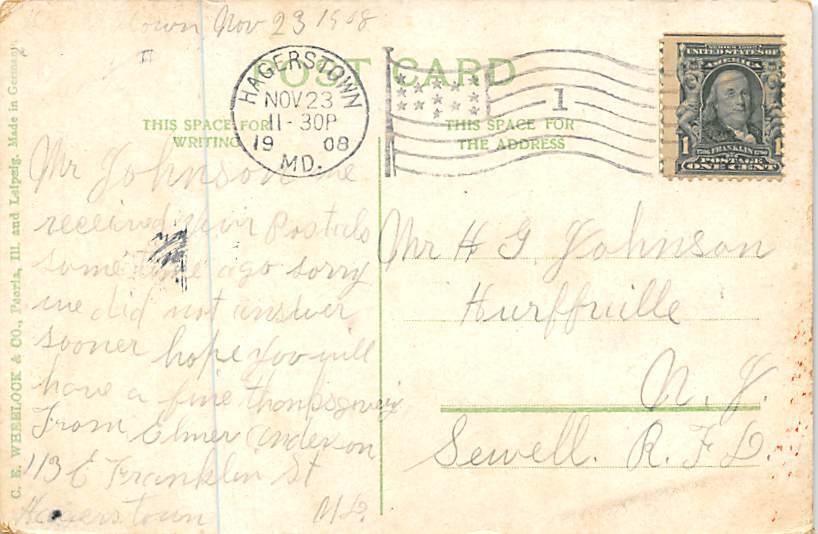 town Nov 23 1908
POST CARD
HAGERSTOWN
NOV 23
11-30P
1908
MD.
1
SERIES 1902
UNITED STATES OF
AMERICA
1706 FRANKLIN 1790
1 1
POSTAGE
ONE CENT
THIS SPACE FOR
WRITING
THIS SPACE FOR
THE ADDRESS
Mr Johnson we
received your Postals
some time ago sorry
we did not answer
sooner hope you will
have a fine thanksgiving
From Elmer Anderson
113 E Franklin St
Hagerstown Md.
Mr H G Johnson
Hurffville
N. J.
Sewell. R. F. D.
C. E. WHEELOCK & CO., Peoria, Ill. and Leipzig. Made in Germany.